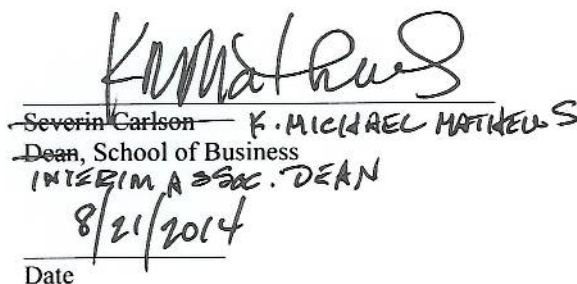 KMMathews
Severin Carlson K. MICHAEL MATHEWS
Dean, School of Business
INTERIM ASSOC. DEAN
8/21/2014
Date